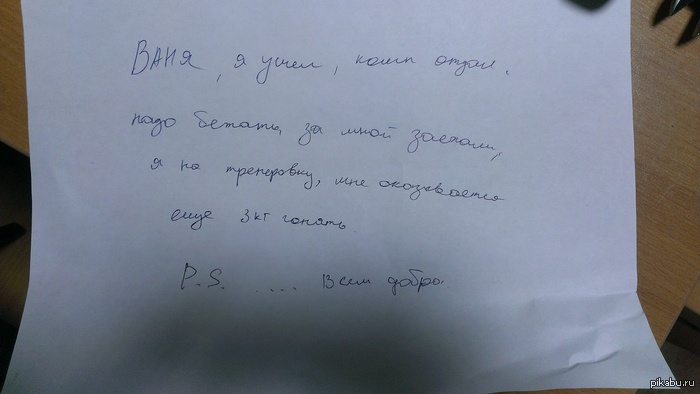 ВАНЯ, я ушел, комп отдал.
надо бежать, за мной заехали,
я на тренировку, мне оказывается
еще 3кг гонять.
P.S. .... Всем добра.
pikabu.ru